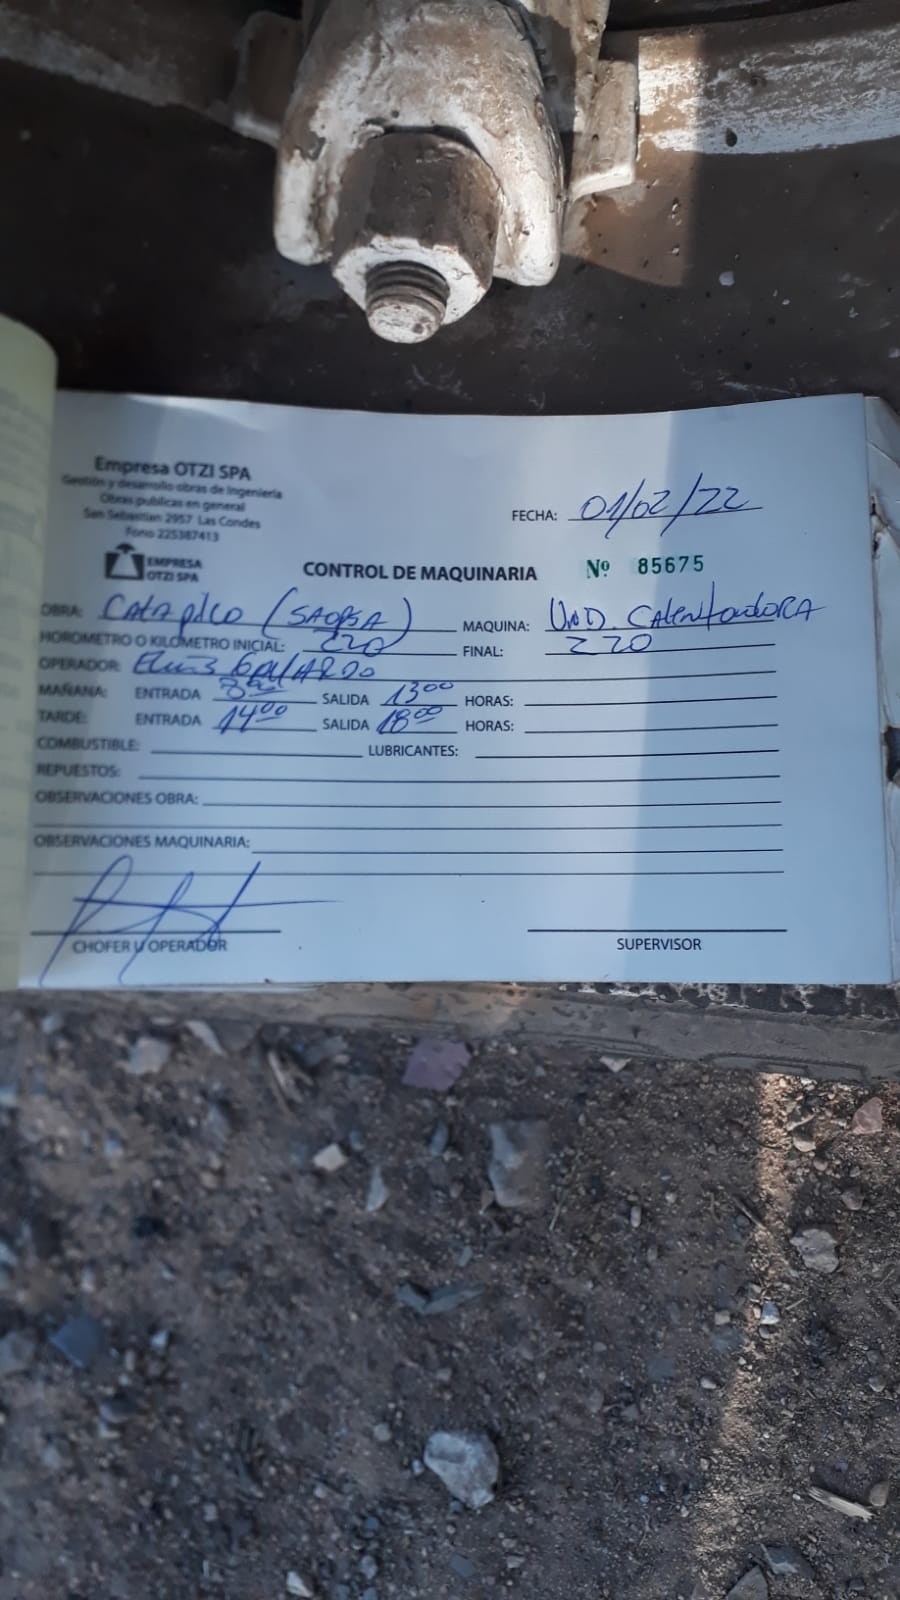 Empresa OTZI SPA
Gestión y desarrollo obras de Ingeniería
Obras publicas en general
San Sebastian 2957 Las Condes
Fono 225387413
EMPRESA
OTZI SPA
FECHA: 01/02/22
CONTROL DE MAQUINARIA Nº 85675
OBRA: Catapilco (SAOPSA) MAQUINA: UND. CALENTADORA
HOROMETRO O KILOMETRO INICIAL: 220 FINAL: 220
OPERADOR: GALLARDO
MAÑANA: ENTRADA 8 SALIDA 13 00 HORAS:
TARDE: ENTRADA 14 00 SALIDA 18 00 HORAS:
COMBUSTIBLE: LUBRICANTES:
REPUESTOS:
OBSERVACIONES OBRA:
OBSERVACIONES MAQUINARIA:
CHOFER U OPERADOR SUPERVISOR